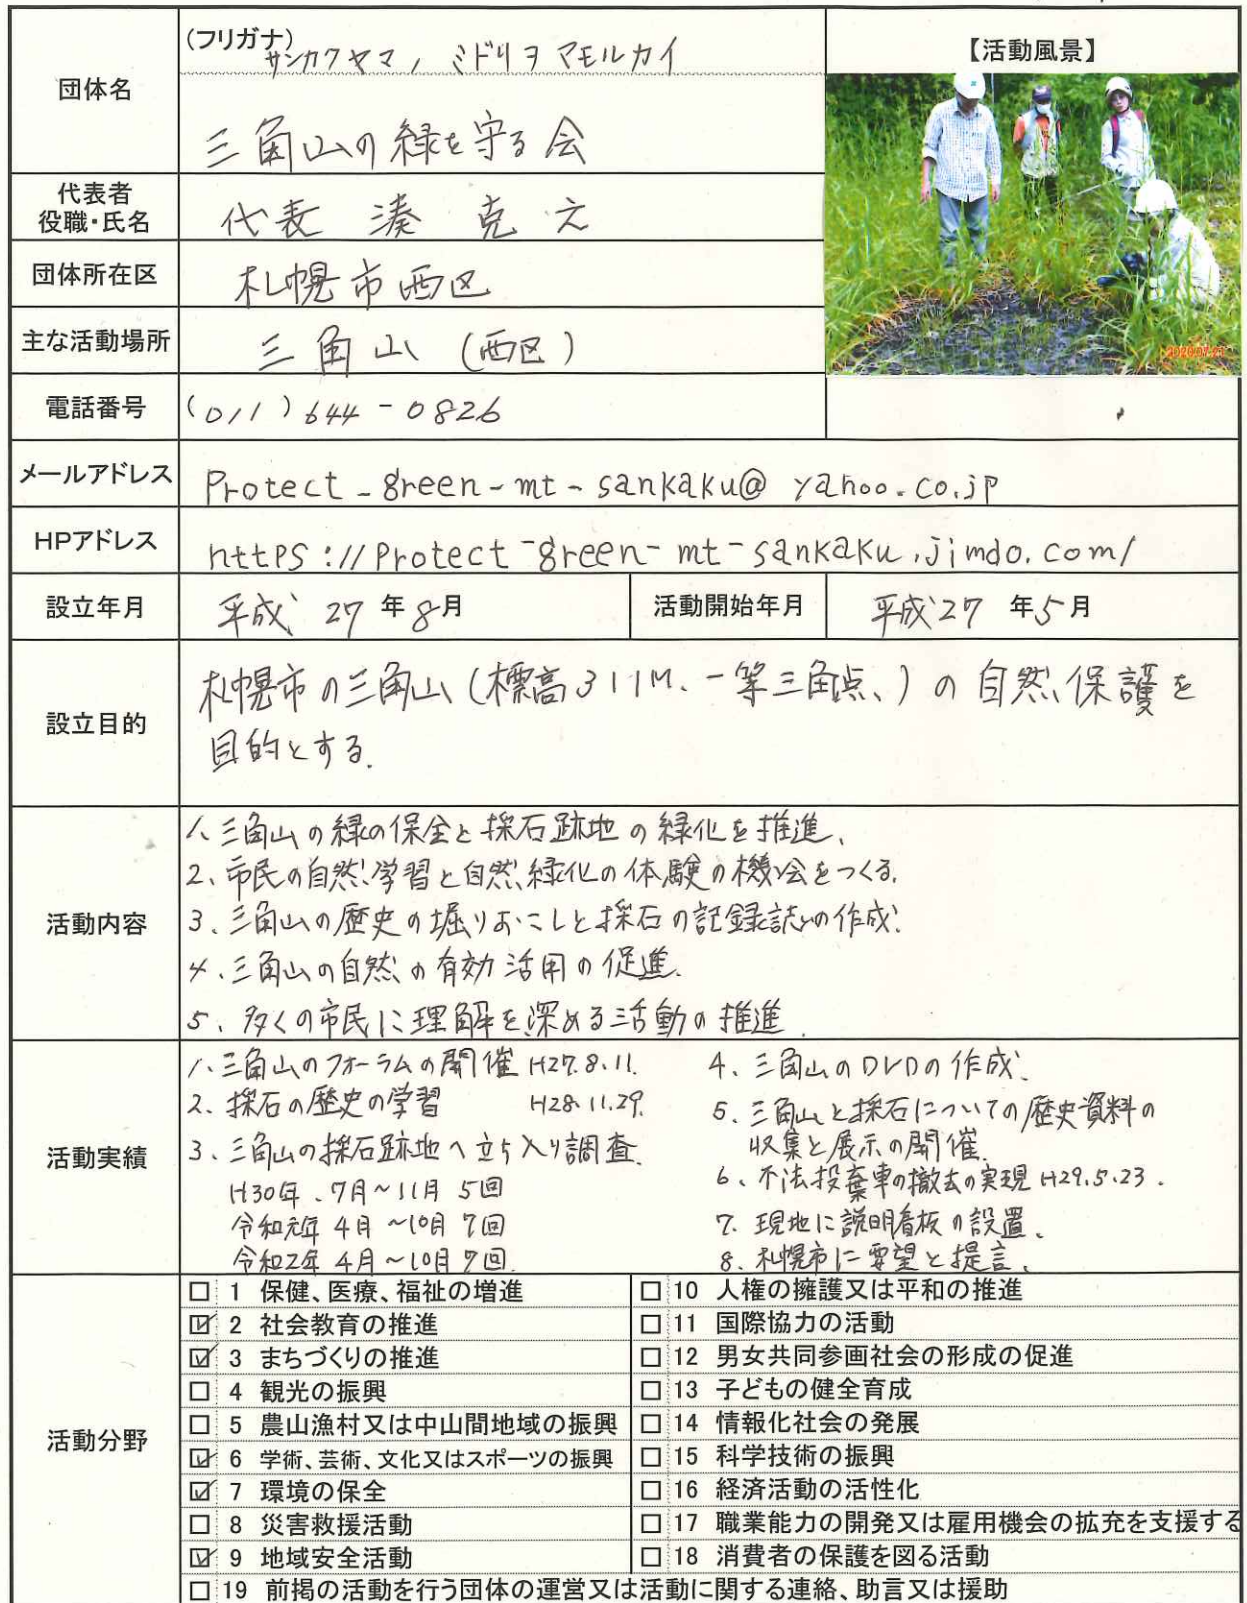 団体名
(フリガナ)
サンカクヤマノミドリヲマモルカイ
三角山の緑を守る会
【活動風景】
2020.07.21
代表者
役職・氏名
代表 湊 克之
団体所在区
札幌市西区
主な活動場所
三角山(西区)
電話番号
(011)644-0826
メールアドレス
Protect_green-mt-sankaku@yahoo.co.jp
HPアドレス
https://Protect-green-mt-sankaku.jimdo.com/
設立年月
平成27年8月
活動開始年月
平成27年5月
設立目的
札幌市の三角山(標高311M、一等三角点、)の自然保護を
目的とする。
活動内容
1、三角山の緑の保全と採石跡地の緑化を推進、
2、市民の自然学習と自然緑化の体験の機会をつくる。
3、三角山の歴史の堀りおこしと採石の記録誌の作成。
4、三角山の自然の有効活用の促進。
5、多くの市民に理解を深める活動の推進
活動実績
1、三角山のフォーラムの開催 H27.8.11.
2、採石の歴史の学習 H28.11.29.
3、三角山の採石跡地へ立ち入り調査。
H30年、7月~11月 5回
令和元年 4月~10月 7回
令和2年 4月~10月 7回.
4、三角山のDVDの作成、
5、三角山と採石についての歴史資料の
収集と展示の開催。
6、不法投棄車の撤去の実現 H29.5.23.
7、現地に説明看板の設置、
8、札幌市に要望と提言、
活動分野
□ 1 保健、医療、福祉の増進
☑ 2 社会教育の推進
☑ 3 まちづくりの推進
□ 4 観光の振興
□ 5 農山漁村又は中山間地域の振興
☑ 6 学術、芸術、文化又はスポーツの振興
☑ 7 環境の保全
□ 8 災害救援活動
☑ 9 地域安全活動
□ 10 人権の擁護又は平和の推進
□ 11 国際協力の活動
□ 12 男女共同参画社会の形成の促進
□ 13 子どもの健全育成
□ 14 情報化社会の発展
□ 15 科学技術の振興
□ 16 経済活動の活性化
□ 17 職業能力の開発又は雇用機会の拡充を支援する
□ 18 消費者の保護を図る活動
□ 19 前掲の活動を行う団体の運営又は活動に関する連絡、助言又は援助